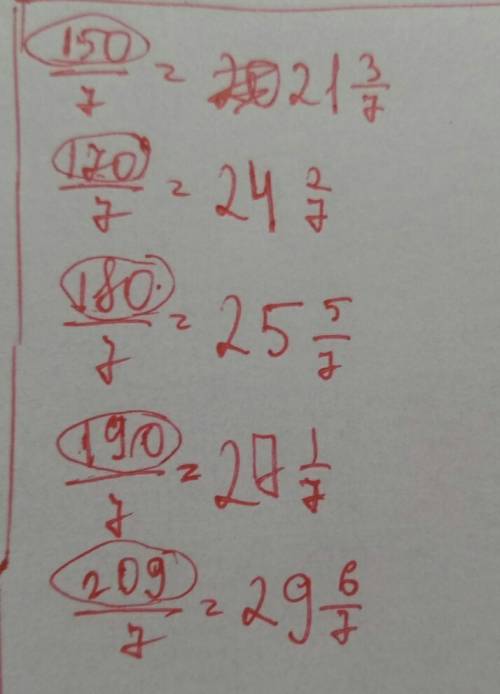 150/7 = 21 3/7
170/7 = 24 2/7
180/7 = 25 5/7
190/7 = 27 1/7
209/7 = 29 6/7